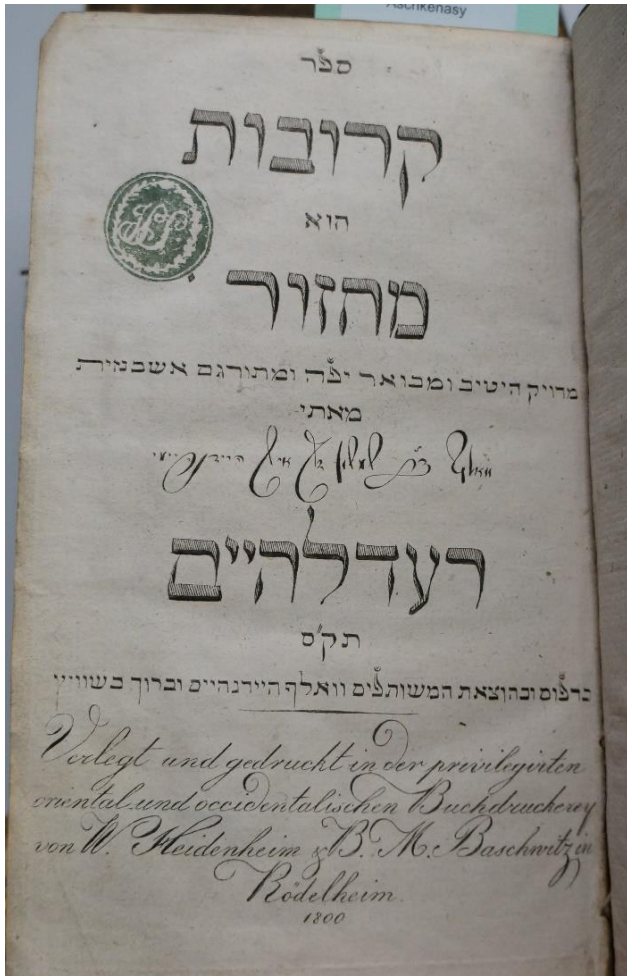 Aschkenasy
ספר
קרובות
הוא
מחזור
מדויק היטיב ומבואר יפה ומתורגם אשכנזית
מאתי
רעדלהיים
תק"ס
בדפוס ובהוצאת המשותפים וואלף היידנהיים וברוך בשוויץ
Verlegt und gedruckt in der privilegirten
oriental und occidentalischen Buchdruckerey
von W. Heidenheim & B. M. Baschwitz in
Rödelheim.
1800